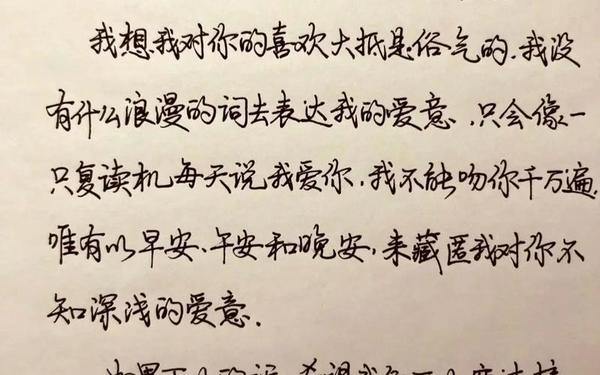 我想我对你的喜欢大抵是俗气的.我没
有什么浪漫的词去表达我的爱意,只会像一
只复读机每天说我爱你,我不能吻你千万遍,
唯有以早安、午安和晚安,来藏匿我对你不
知深浅的爱意.